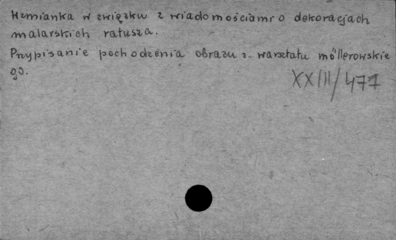 Wzmianka w związku z wiadomościami o dekoracjach
malarskich ratusza.
Przypisanie pochodzenia obrazu z warsztatu möllerowskie
go.
XXIII/477